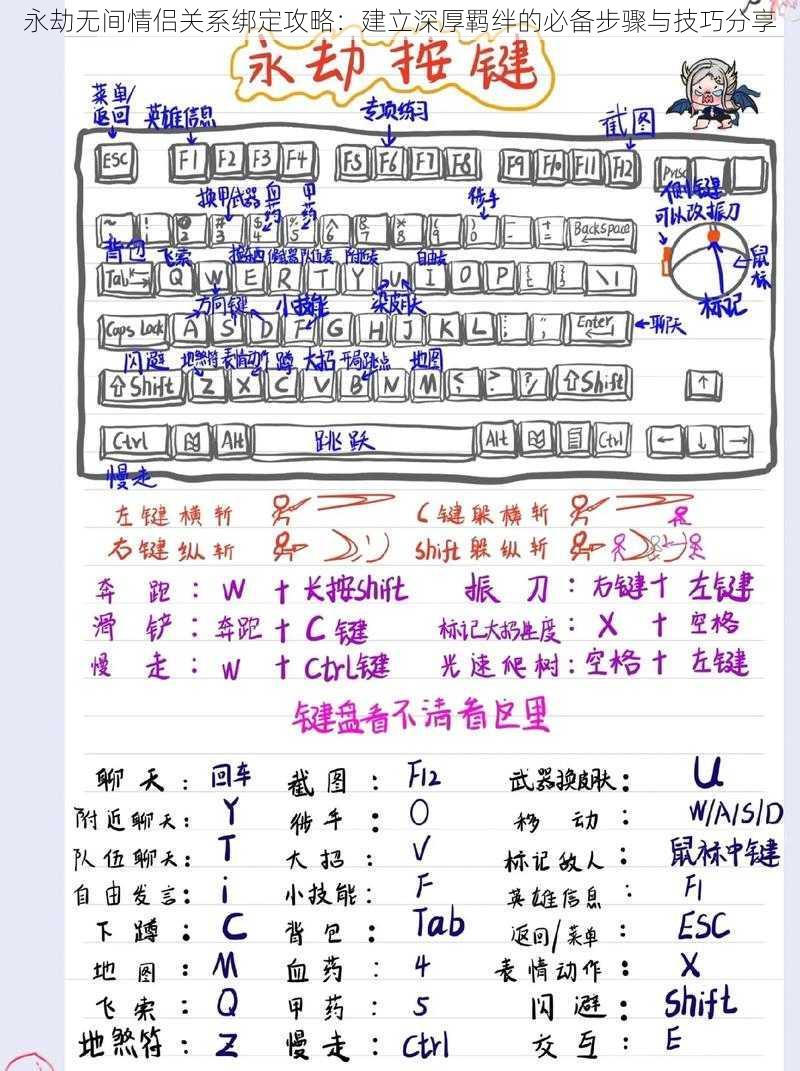 永劫无间情侣关系绑定攻略：建立深厚羁绊的必备步骤与技巧分享
永劫按键
菜单/返回 英雄信息 专项练习 截图
ESC F1 F2 F3 F4 F5 F6 F7 F8 F9 F10 F11 F12 Prtsc
换甲 武器 血药 甲药 徒手 侧键可以改振刀
~ ! 2 # 3 $ 4 % 5 ^ 6 & 7 * 8 ( 9 ) 0 - + = Backspace
背包 飞索 队伍聊天 附近聊 自由发 鼠标
Tab Q W E R T Y U I O P { [ } ] \ |
方向键 小技能 换皮肤 标记
Caps Lock A S D F G H J K L : ; " Enter 聊天
闪避 地煞符 表情动作 蹲 大招 开局跳点 地图
⇧Shift Z X C V B N M < , > . ? / ⇧Shift ↑
Ctrl Alt 跳跃 Alt Ctrl ← ↓ →
慢走
左键横斩 C键躲横斩
右键纵斩 shift躲纵斩
奔跑：W + 长按shift 振刀：右键+左键
滑铲：奔跑+C键 标记大招进度：X + 空格
慢走：W + Ctrl键 光速爬树：空格+左键
键盘看不清看这里
聊天：回车 截图：F12 武器换皮肤：U
附近聊天：Y 徒手：O 移动：W/A/S/D
队伍聊天：T 大招：V 标记敌人：鼠标中键
自由发言：i 小技能：F 英雄信息：F1
下蹲：C 背包：Tab 返回/菜单：ESC
地图：M 血药：4 表情动作：X
飞索：Q 甲药：5 闪避：Shift
地煞符：Z 慢走：Ctrl 交互：E